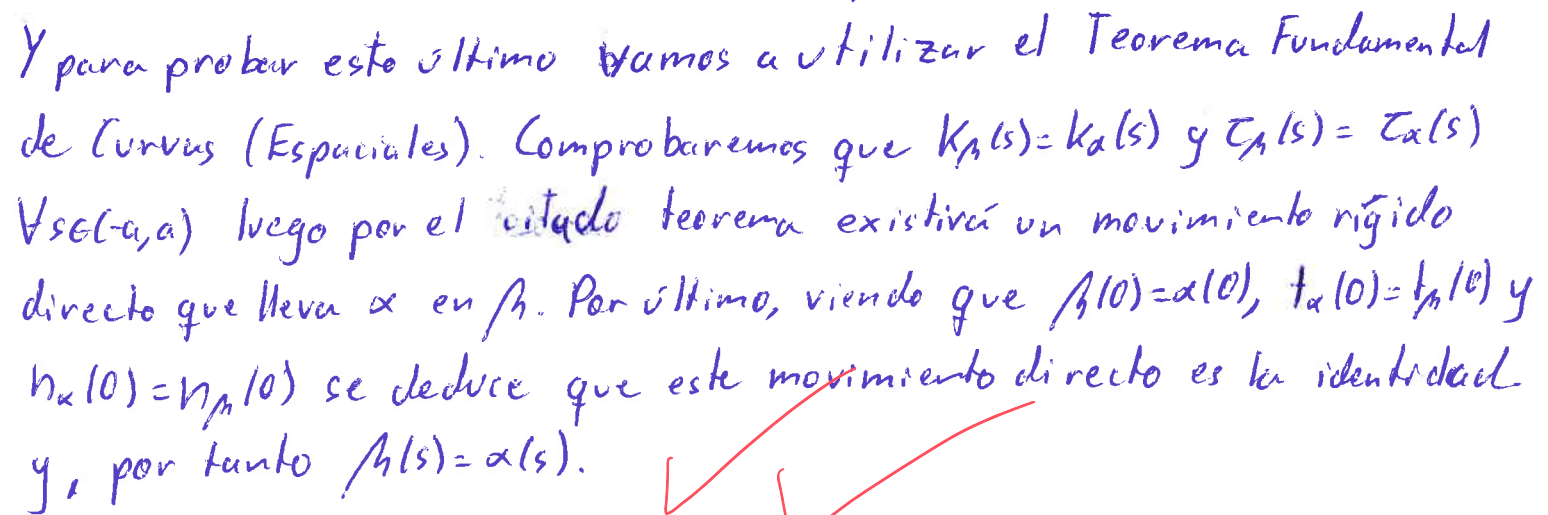 Y para probar esto último vamos a utilizar el Teorema Fundamental
de Curvas (Espaciales). Comprobaremos que κβ(s)=κα(s) y τβ(s) = τα(s)
∀s∈(-a,a) luego por el citado teorema existirá un movimiento rígido
directo que lleva α en β. Por último, viendo que β(0)=α(0), tα(0)=tβ(0) y
nα(0)=nβ(0) se deduce que este movimiento directo es la identidad
y, por tanto β(s)=α(s).